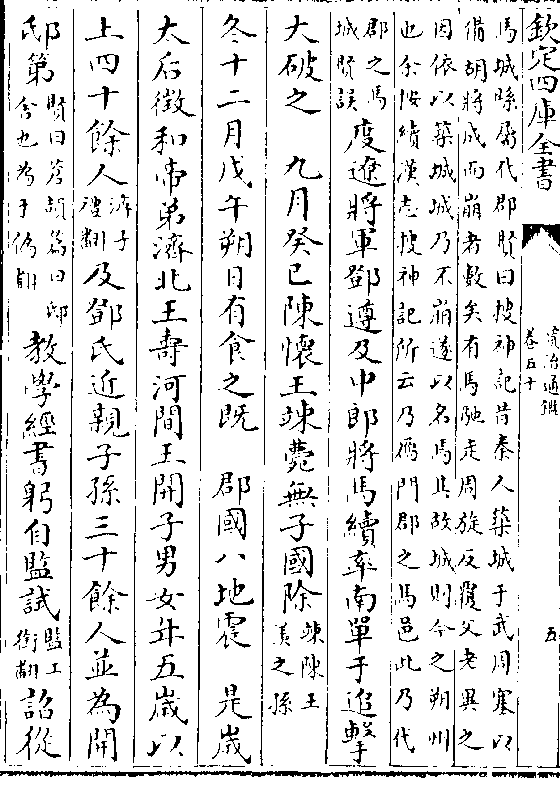 欽定四庫全書
資治通鑑
卷五十
五
馬城縣屬代郡賢曰搜神記昔秦人築城于武周塞以
備胡將成而崩者數矣有馬馳走周旋反覆父老異之
因依以築城城乃不崩遂以名馬其故城則今之朔州
也余按續漢志搜神記所云乃鴈門郡之馬邑此乃代
郡之馬
城賢誤
度遼將軍鄧遵及中郎將馬續率南單于追擊
大破之 九月癸巳陳懷王竦薨無子國除
竦陳王
羨之孫
冬十二月戊午朔日有食之既 郡國八地震 是歲
太后徵和帝弟濟北王壽河間王開子男女年五歲以
上四十餘人
濟子
禮翻
及鄧氏近親子孫三十餘人並為開
邸第
賢曰蒼頡篇曰邸
舍也為于偽翻
教學經書躬自監試
監工
銜翻
詔從